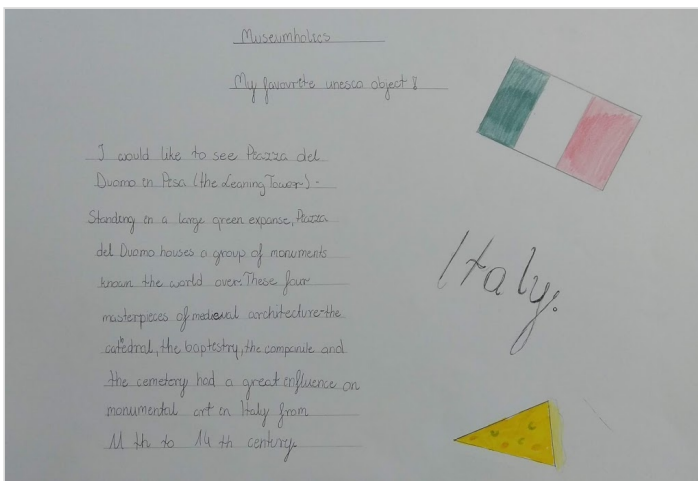 Museumholics
My favourite unesco object:
I would like to see Piazza del
Duomo in Pisa (the Leaning Tower).
Standing in a large green expanse, Piazza
del Duomo houses a group of monuments
known the world over. These four
masterpieces of medieval architecture-the
catedral, the baptistry, the campanile and
the cemetery had a great influence on
monumental art in Italy from
11 th to 14 th century.
Italy.